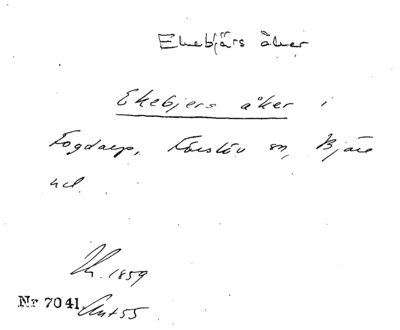 Ekebjärs åker
Ekebjers åker i
Fogdarp, Förslöv sn, Bjäre
hd.
1859
Nr 7041.